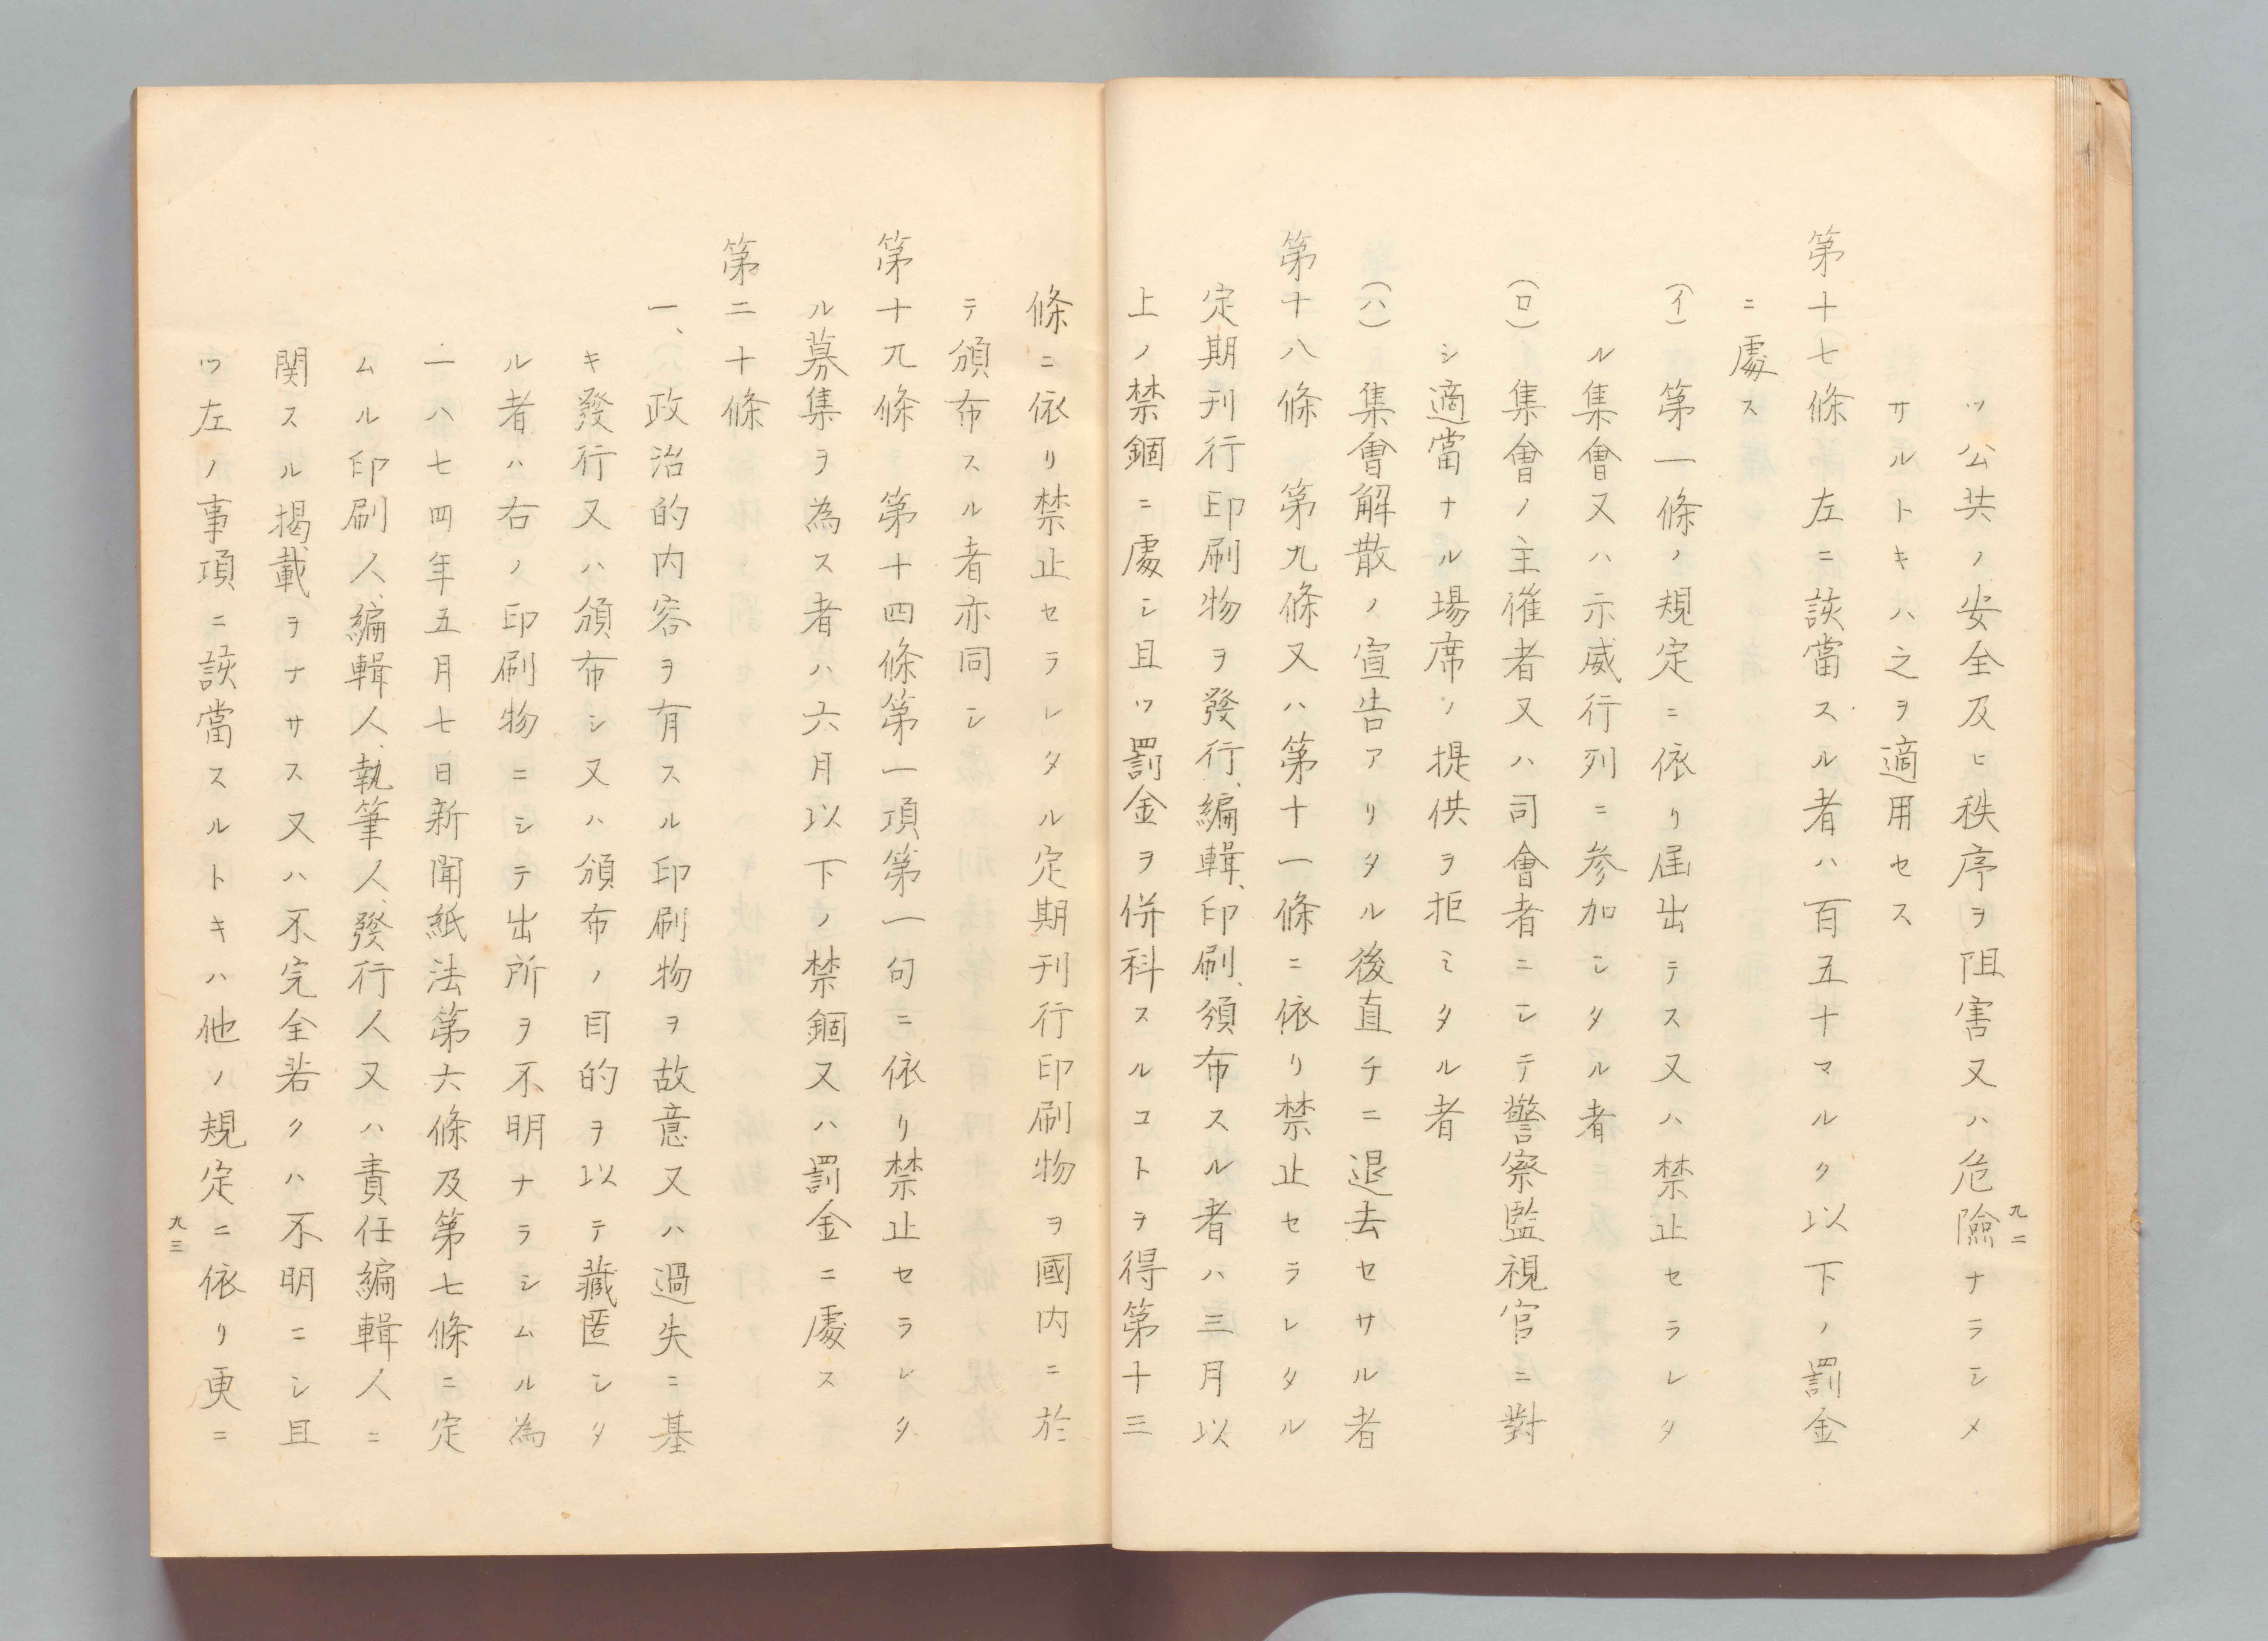 ツ公共ノ安全及ヒ秩序ヲ阻害又ハ危險ナラシメ
サルトキハ之ヲ適用セス
第十七條　左ニ該當スル者ハ百五十マルク以下ノ罰金
ニ處ス
(イ)　第一條ノ規定ニ依リ届出テス又ハ禁止セラレタ
ル集會又ハ示威行列ニ参加シタル者
(ロ)　集會ノ主催者又ハ司會者ニシテ警察監視官ニ對
シ適當ナル場席ノ提供ヲ拒ミタル者
(ハ)　集會解散ノ宣告アリタル後直チニ退去セサル者
第十八條　第九條又ハ第十一條ニ依リ禁止セラレタル
定期刊行印刷物ヲ發行、編輯、印刷、頒布スル者ハ三月以
上ノ禁錮ニ處シ且ツ罰金ヲ併科スルコトヲ得第十三
九二
條ニ依リ禁止セラレタル定期刊行印刷物ヲ國内ニ於
テ頒布スル者亦同シ
第十九條　第十四條第一項第一句ニ依リ禁止セラレタ
ル募集ヲ為ス者ハ六月以下ノ禁錮又ハ罰金ニ處ス
第二十條
一、政治的内容ヲ有スル印刷物ヲ故意又ハ過失ニ基
キ發行又ハ頒布シ又ハ頒布ノ目的ヲ以テ藏匿シタ
ル者ハ右ノ印刷物ニシテ出所ヲ不明ナラシムル為
一八七四年五月七日新聞紙法第六條及第七條ニ定
ムル印刷人、編輯人、執筆人、發行人又ハ責任編輯人ニ
関スル掲載ヲナサス又ハ不完全若クハ不明ニシ且
ツ左ノ事項ニ該當スルトキハ他ノ規定ニ依リ更ニ
九三